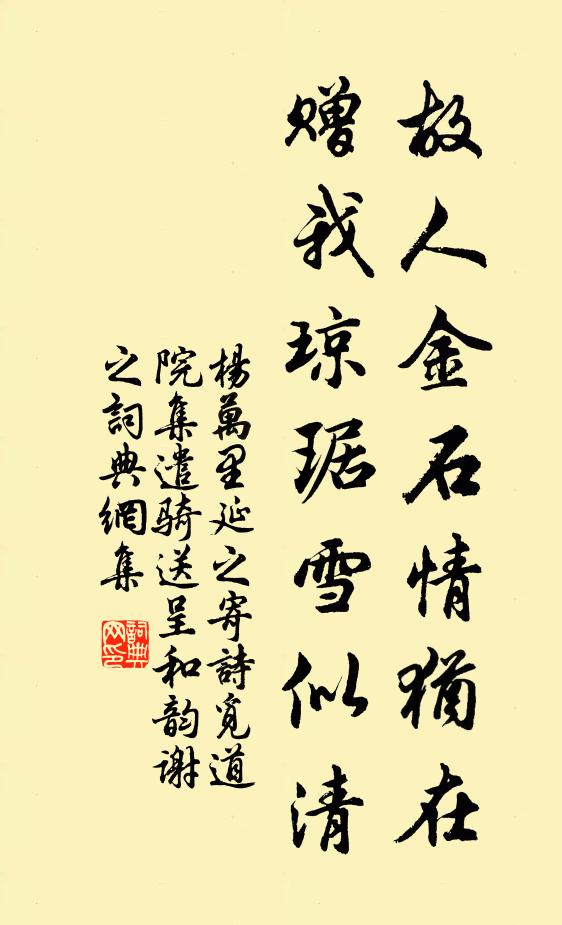 故人金石情猶在
贈我琼琚雪似清
楊萬里延之寄詩覓道
院集遣騎送呈和韵谢
之詞典網集
詞典
网印